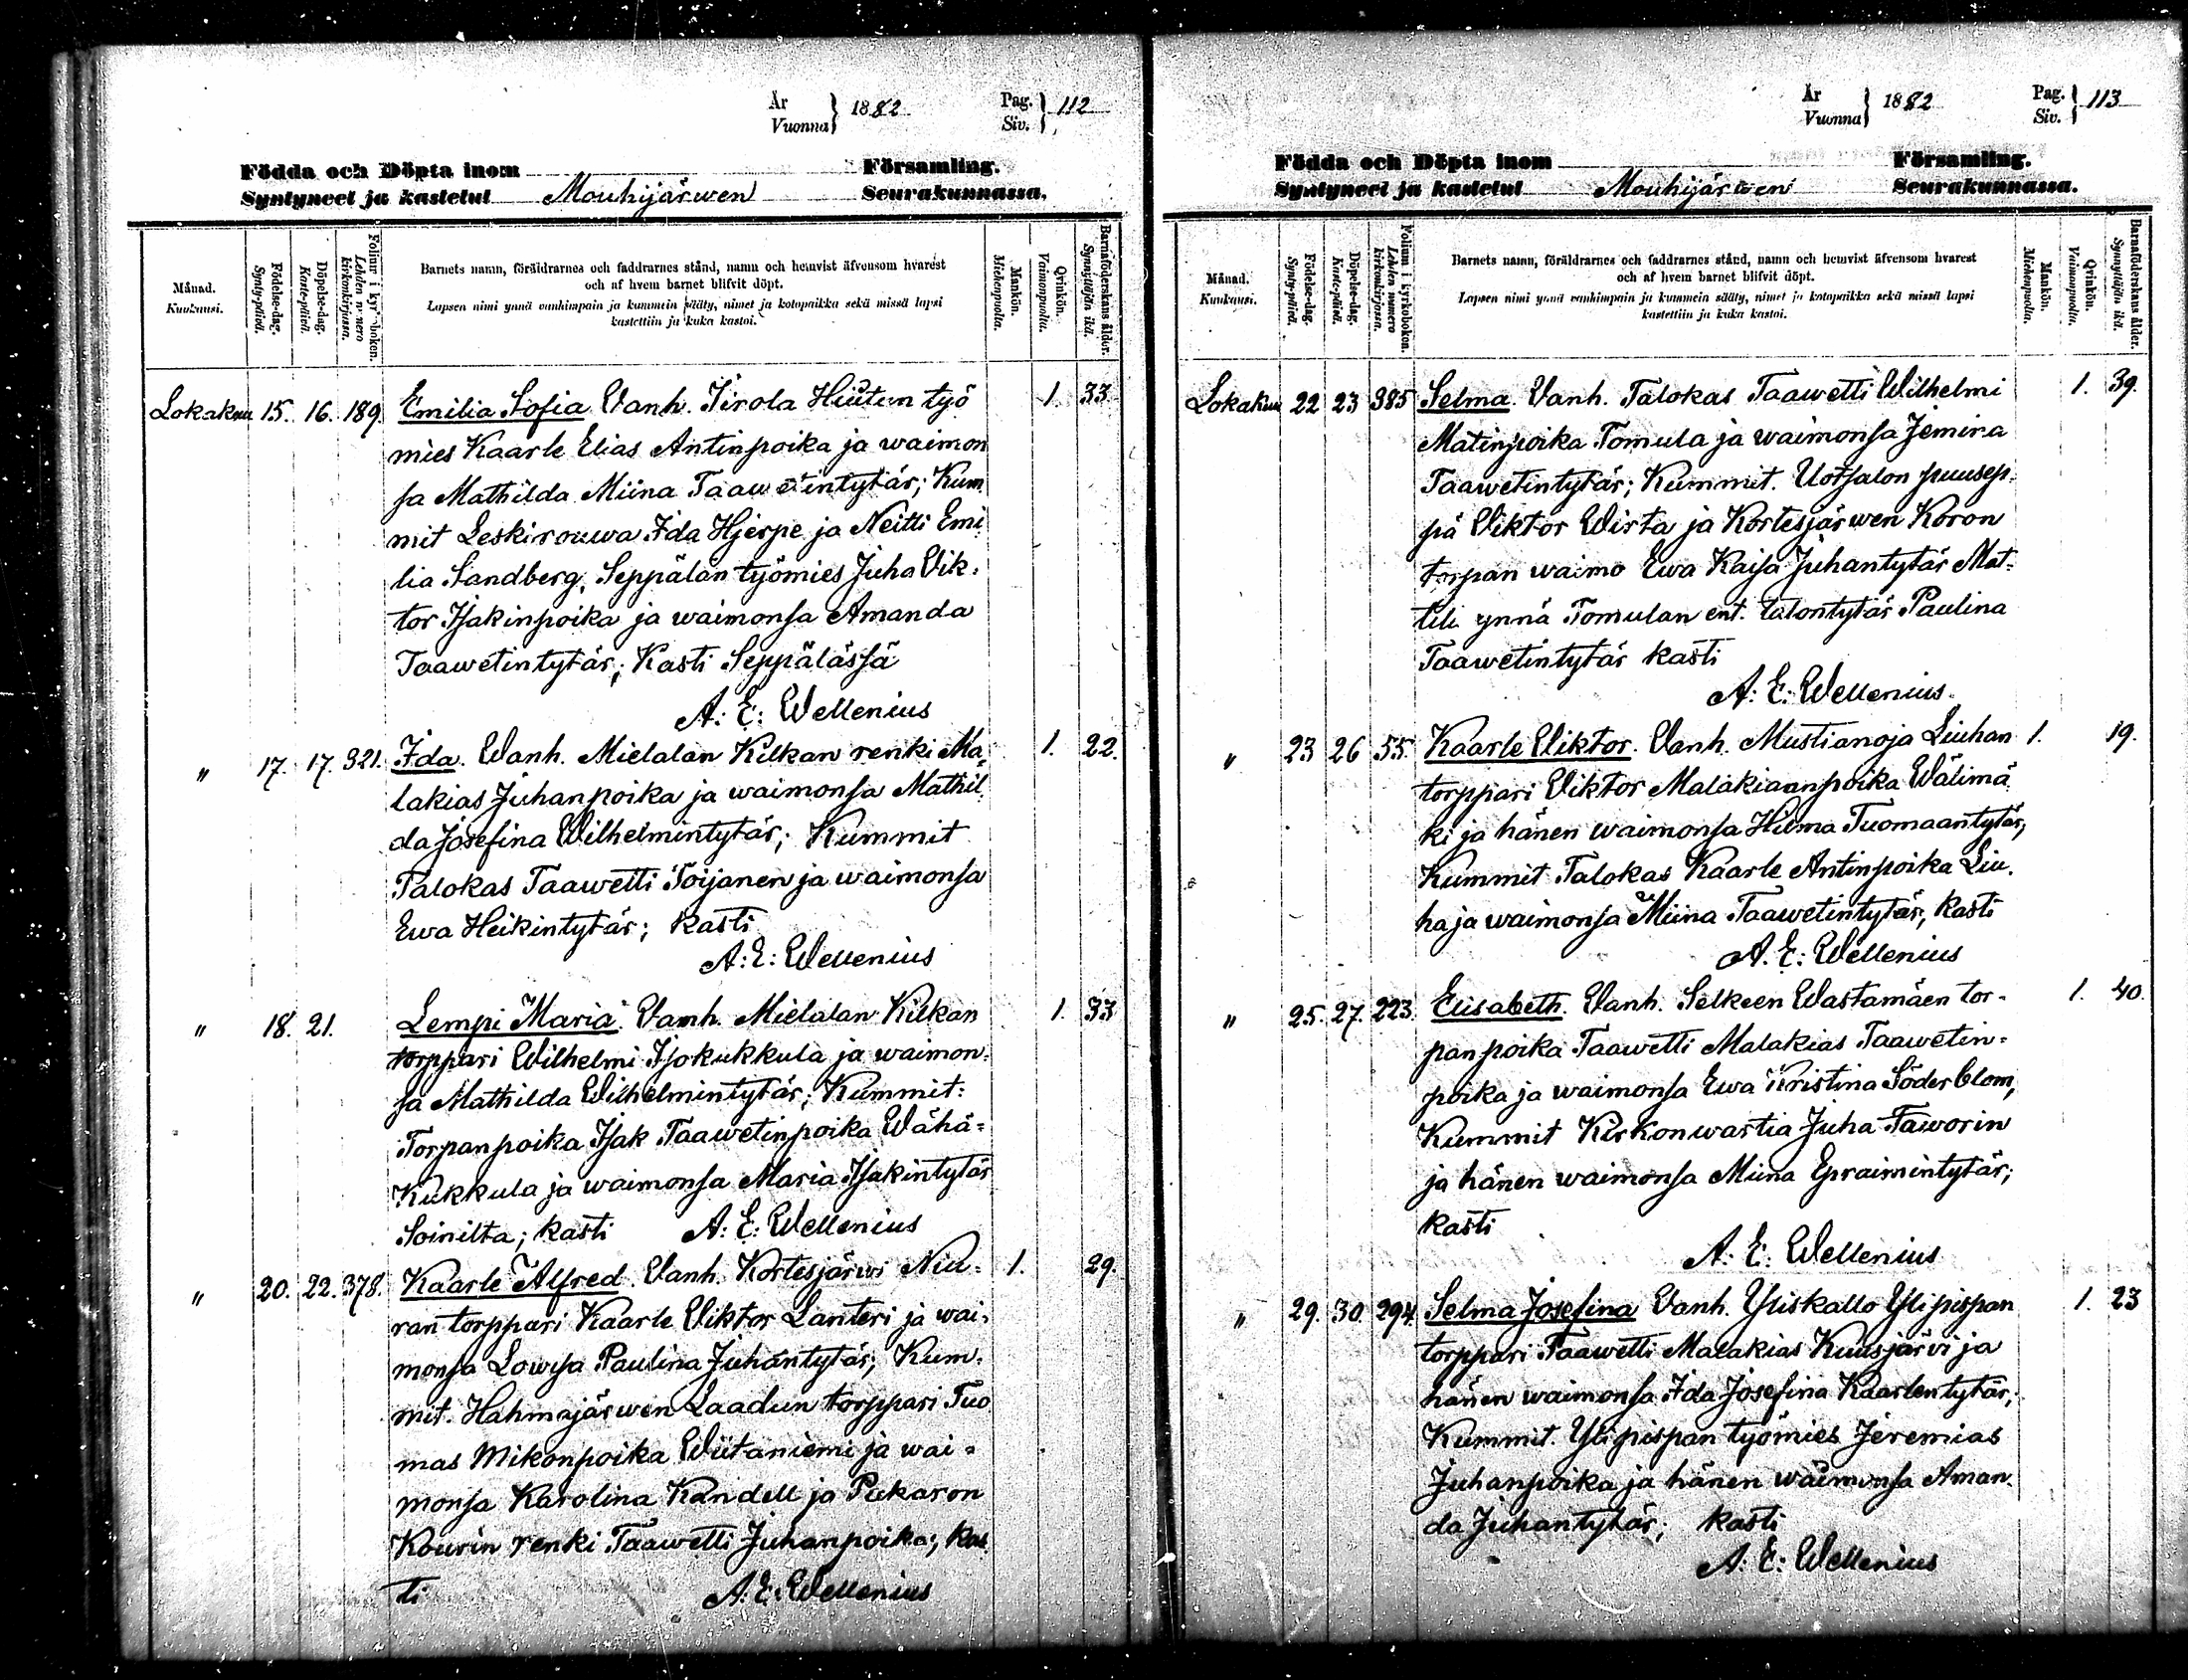 År
Vuonna } 1882
Pag.
Siv. } 112
Födda och Döpta inom Församling.
Syntyneet ja kastetut Mouhijärwen Seurakunnassa.
Månad.
Kuukausi.
Födelse-dag.
Synty-päivä.
Döpelse-dag.
Kaste-päivä.
Folium i kyrkoboken.
Lehden numero kirkonkirjassa.
Barnets namn, föräldrarnes och faddrarnes stånd, namn och hemvist äfvensom hvarest
och af hvem barnet blifvit döpt.
Lapsen nimi ynnä vanhimpain ja kummein sääty, nimet ja kotopaikka sekä missä lapsi
kastettiin ja kuka kastoi.
Mankön.
Miehenpuolia.
Qvinkön.
Vaimonpuolia.
Barnaföderskans ålder.
Synnyttäjän ikä.
Lokakuu 15. 16. 189. Emilia Sofia Vanh. Tirola Hiutun työ 1. 33
mies Kaarle Elias Antinpoika ja waimon
sa Mathilda Miina Taawetintytär; Kum
mit Leskirouwa Ida Hjerpe ja Neitti Emi
lia Sandberg, Seppälän työmies Juha Vik-
tor Isakinpoika ja waimonsa Amanda
Taawetintytär; Kasti Seppälässä
A: E: Wellenius
" 17. 17. 321. Ida. Vanh. Mielalan Kilkan renki Ma- 1. 22.
lakias Juhanpoika ja waimonsa Mathil-
da Josefina Wilhelmintytär; Kummit
Talokas Taawetti Toijanen ja waimonsa
Ewa Heikintytär; kasti
A: E: Wellenius
" 18. 21. Lempi Maria. Vanh. Mielalan Kilkan 1. 33
torppari Wilhelmi Isokukkula ja waimon-
sa Mathilda Wilhelmintytär; Kummit:
Torpanpoika Isak Taawetinpoika Wähä-
Kukkula ja waimonsa Maria Isakintytär
Soinilta; kasti A: E: Wellenius
" 20. 22. 378. Kaarle Alfred. Vanh. Kortesjärwi Niu- 1. 29.
ran torppari Kaarle Viktor Lanteri ja wai-
monsa Lowisa Paulina Juhantytär; Kum-
mit. Hahmajärwen Laadun torppari Tuo
mas Mikonpoika Wiitaniemi ja wai-
monsa Karolina Kandell ja Pukaron
Kourin renki Taawetti Juhanpoika; kas
ti A: E: Wellenius
År
Vuonna } 1882
Pag.
Siv. } 113
Födda och Döpta inom Församling.
Syntyneet ja kastetut Mouhijärwen Seurakunnassa.
Månad.
Kuukausi.
Födelse-dag.
Synty-päivä.
Döpelse-dag.
Kaste-päivä.
Folium i kyrkoboken.
Lehden numero kirkonkirjassa.
Barnets namn, föräldrarnes och faddrarnes stånd, namn och hemvist äfvensom hvarest
och af hvem barnet blifvit döpt.
Lapsen nimi ynnä vanhimpain ja kummein sääty, nimet ja kotopaikka sekä missä lapsi
kastettiin ja kuka kastoi.
Mankön.
Miehenpuolia.
Qvinkön.
Vaimonpuolia.
Barnaföderskans ålder.
Synnyttäjän ikä.
Lokakuu 22 23 385 Selma. Vanh. Talokas Taawetti Wilhelmi 1. 39.
Matinpoika Tomula ja waimonsa Jemina
Taawetintytär; Kummit. Uotsalon puusep-
pä Viktor Wirta ja Kortesjärwen Koron
torpan waimo Ewa Kaisa Juhantytär Mat-
tili ynnä Tomulan ent. talontytär Paulina
Taawetintytär kasti
A: E: Wellenius.
" 23 26 55. Kaarle Viktor. Vanh. Mustianoja Liuhan 1. 19.
torppari Viktor Malakiaanpoika Wälimä
ki ja hänen waimonsa Hilma Tuomaantytär;
Kummit Talokas Kaarle Antinpoika Liu-
ha ja waimonsa Miina Taawetintytär, kasti
A. E: Wellenius
" 25. 27. 223. Elisabeth. Vanh. Selkeen Wastamäen tor- 1. 40.
panpoika Taawetti Malakias Taawetin-
poika ja waimonsa Ewa Kristina Söderblom,
Kummit Kirkonwartia Juha Taworin
ja hänen waimonsa Miina Epraimintytär;
kasti
A: E: Wellenius
" 29. 30. 294. Selma Josefina Vanh. Yliskallo Ylipispan 1. 23
torppari Taawetti Malakias Kuusjärvi ja
hänen waimonsa Ida Josefina Kaarlentytär;
Kummit. Ylipispan työmies Jeremias
Juhanpoika ja hänen waimonsa Aman-
da Juhantytär; kasti
A: E: Wellenius